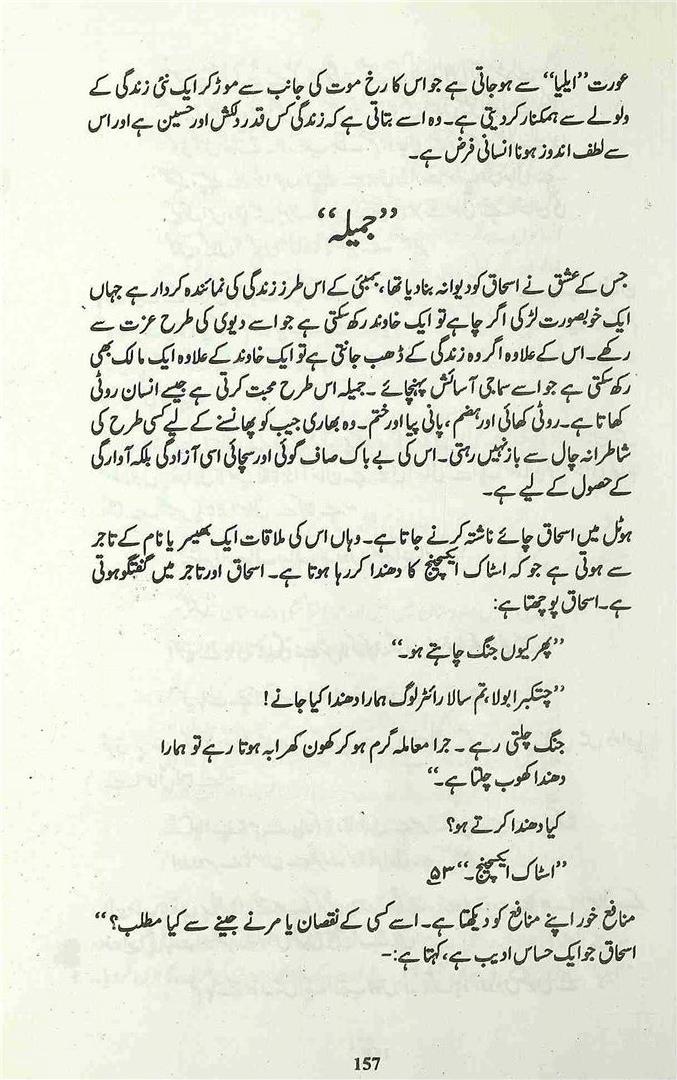 عورت “ایلیا” سے ہوجاتی ہے جو اس کا رخ موت کی جانب سے موڑ کر ایک نئی زندگی کے
ولولے سے ہمکنار کردیتی ہے۔ وہ اسے بتاتی ہے کہ زندگی کس قدر دلکش اور حسین ہے اور اس
سے لطف اندوز ہونا انسانی فرض ہے۔
“جمیلہ”
جس کے عشق نے اسحاق کو دیوانہ بنادیا تھا، بمبئی کے اس طرز زندگی کی نمائندہ کردار ہے جہاں
ایک خوبصورت لڑکی اگر چاہے تو ایک خاوند رکھ سکتی ہے جو اسے دیوی کی طرح عزت سے
رکھے۔ اس کے علاوہ اگر وہ زندگی کے ڈھب جانتی ہے تو ایک خاوند کے علاوہ ایک مالک بھی
رکھ سکتی ہے جو اسے سماجی آسائش پہنچائے ۔ جمیلہ اس طرح محبت کرتی ہے جیسے انسان روٹی
کھاتا ہے۔ روٹی کھائی اور ہضم، پانی پیا اور ختم۔ وہ بھاری جیب کو پھانسنے کے لیے کسی طرح کی
شاطرانہ چال سے باز نہیں رہتی۔ اس کی بے باک صاف گوئی اور سچائی اسی آزادگی بلکہ آوارگی
کے حصول کے لیے ہے۔
ہوٹل میں اسحاق چائے ناشتہ کرنے جاتا ہے۔ وہاں اس کی ملاقات ایک بھیسریا نام کے تاجر
سے ہوتی ہے جو کہ اسٹاک ایکسچینج کا دھندا کررہا ہوتا ہے۔ اسحاق اور تاجر میں گفتگو ہوتی
ہے۔ اسحاق پوچھتا ہے:
“پھر کیوں جنگ چاہتے ہو۔”
“چتکبرا بولا، تم سالا رائٹر لوگ ہمارا دھندا کیا جانے!
جنگ چلتی رہے ۔ جرا معاملہ گرم ہو کر کھون کھرابہ ہوتا رہے تو ہمارا
دھندا کھوب چلتا ہے۔”
کیا دھندا کرتے ہو؟
“اسٹاک ایکسچینج۔” ۵۳
منافع خور اپنے منافع کو دیکھتا ہے۔ اسے کسی کے نقصان یا مرنے جینے سے کیا مطلب؟”
اسحاق جو ایک حساس ادیب ہے، کہتا ہے:-
157